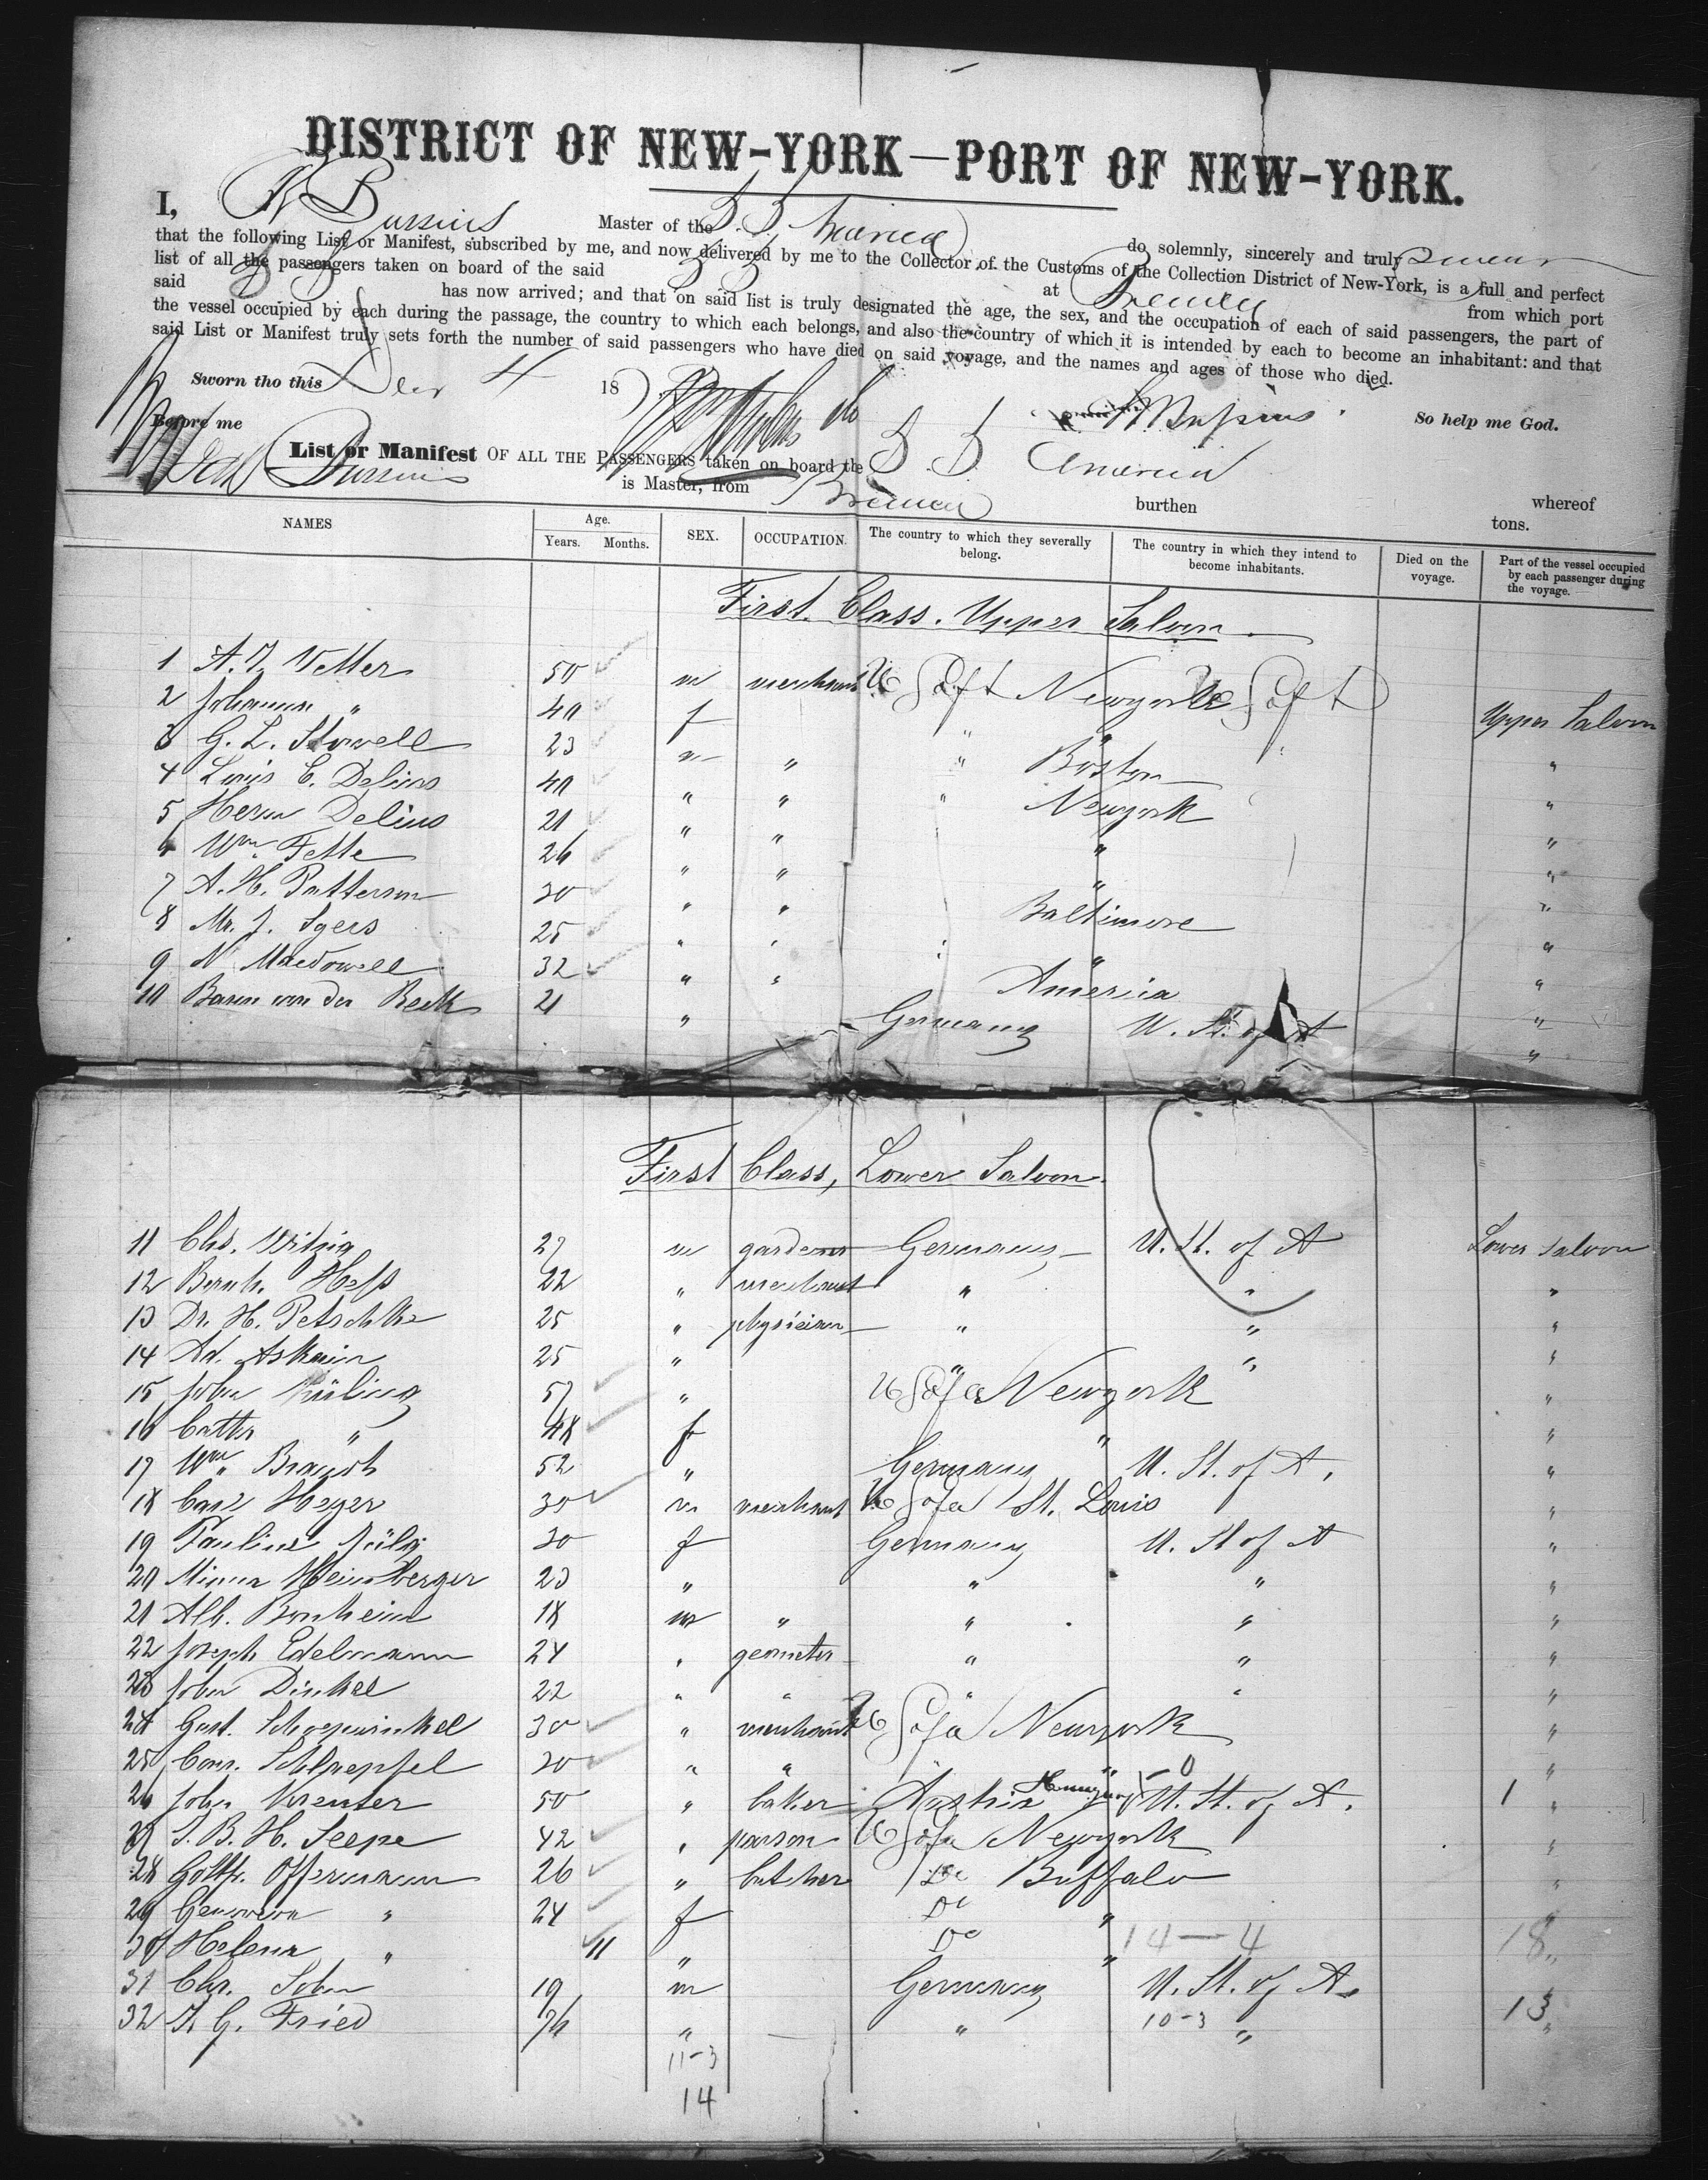 DISTRICT OF NEW-YORK—PORT OF NEW-YORK.
I, Bussius Master of the S. S. America do solemnly, sincerely and truly swear
that the following List or Manifest, subscribed by me, and now delivered by me to the Collector of the Customs of the Collection District of New-York, is a full and perfect
list of all the passengers taken on board of the said S S at Bremen from which port
said S S has now arrived; and that on said list is truly designated the age, the sex, and the occupation of each of said passengers, the part of
the vessel occupied by each during the passage, the country to which each belongs, and also the country of which it is intended by each to become an inhabitant: and that
said List or Manifest truly sets forth the number of said passengers who have died on said voyage, and the names and ages of those who died.
Sworn tho this Dec 4 18 So help me God.
Before me
List or Manifest OF ALL THE PASSENGERS taken on board the S. S. America whereof
Bussius is Master, from Bremen burthen tons.
NAMES Age. Years. Months. SEX. OCCUPATION. The country to which they severally belong. The country in which they intend to become inhabitants. Died on the voyage. Part of the vessel occupied by each passenger during the voyage.
First Class. Upper Saloon.
1 A. Vetter 50 m merchant U S of A Newyork U S of A Upper Saloon
2 Johanna " 40 f " " "
3 G. L. Stowell 23 m " " Boston "
4 Louis C. Delius 40 " " " Newyork "
5 Herm Delius 21 " " " "
6 Wm. Fette 26 " " " "
7 A. H. Patterson 30 " " Baltimore "
8 Mr. J. 25 " " " " "
9 N. Macdowell 32 " " America "
10 Baron von der Reck 21 " Germany U. St. of A "
First Class, Lower Saloon.
11 Chs. Witzig 27 m gardener Germany U. St. of A Lower Saloon
12 Bernh. Heß 22 " merchant " " "
13 Dr. H. Petschke 25 " physician " " "
14 Ad. 25 " " " "
15 John 57 " U S of A Newyork "
16 " 48 f " "
17 Wm. 52 " Germany U. St. of A. "
18 Carl Heger 30 m merchant U S of A St. Louis "
19 Pauline 30 f Germany U. St of A "
20 Minna 23 " " " "
21 Alb. Bonheim 18 m " " " "
22 Joseph Edelmann 24 " geometer " " "
23 John Dinkel 22 " " " " "
24 Gust. 30 " merchant U S of A Newyork "
25 30 " " " "
26 John 50 " baker Austria Hungary U. St. of A. 1 "
27 S. B. H. Seepe 42 " parson U S of A Newyork "
28 Gottfr. Offermann 26 " butcher Do Buffalo "
29 " 24 f Do " "
30 Helena " 11 " Do " 14—4 18 "
31 Chr. 19 m Germany U. St. of A. "
32 G. Fried " " 10-3 " 13 "
11-3
14